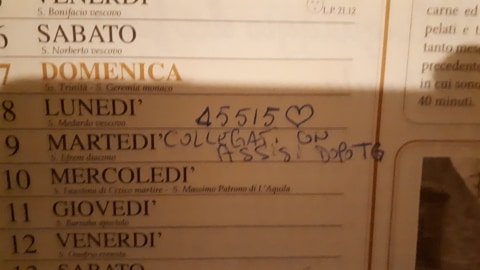 VENERDI'
S. Bonifacio vescovo
LP 21.12
6 SABATO
S. Norberto vescovo
7 DOMENICA
Ss. Trinità - S. Geremia monaco
8 LUNEDI' 45515♡
S. Medardo vescovo
9 MARTEDI' COLLEGAS. ON
S. Efrem diacono ASSIS. DOPO TG
10 MERCOLEDI'
S. Faustina di Cizico martire - S. Massimo Patrono di L'Aquila
11 GIOVEDI'
S. Barnaba apostolo
12 VENERDI'
S. Onofrio eremita
SABATO
carne ed
pelati e t
tanto me
precedente
in cui sono
40 minuti.